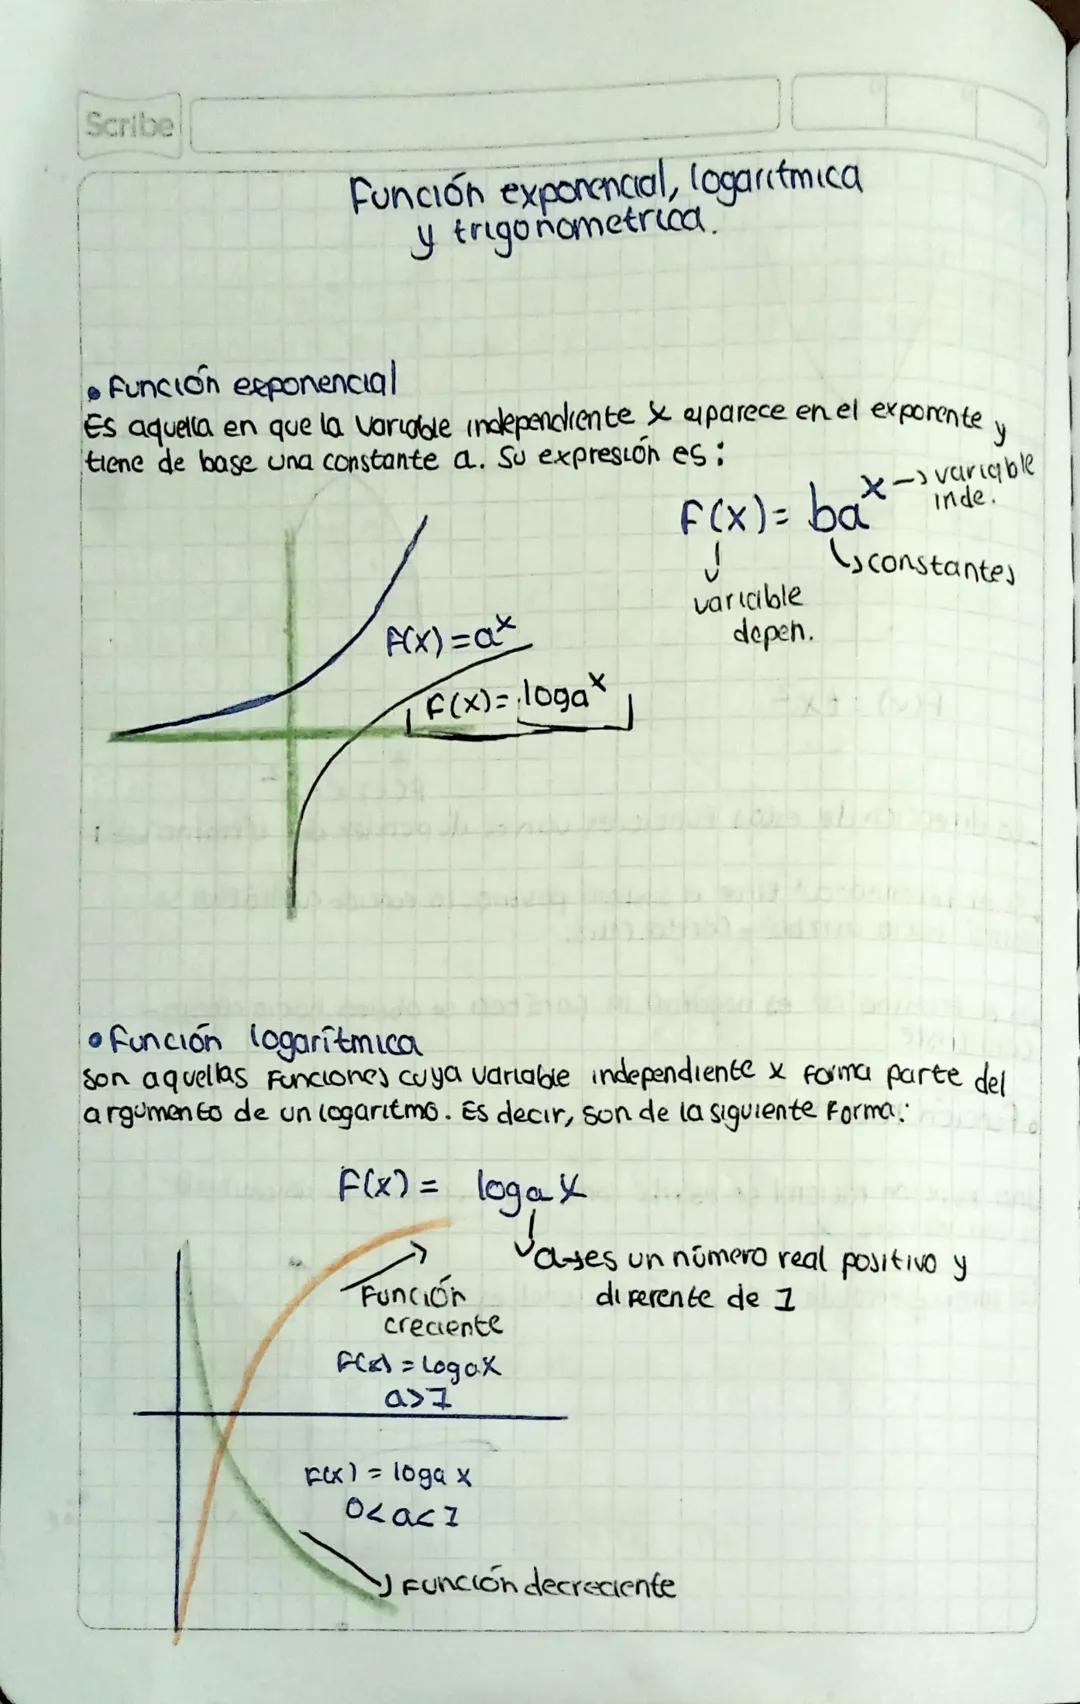 Scribe
Función exponencial, logarítmica
y trigonometrica.
• Función exponencial
Es aquella en que la variable independiente x aparece en el exponente y
tiene de base una constante a. Su expresión es:
F(x) = ba^x → variable
inde.
↳ constantes
↓
variable
depen.
F(x) = a^x
F(x) = loga^x
• Función logarítmica
Son aquellas Funciones cuya variable independiente x forma parte del
argumento de un logaritmo. Es decir, son de la siguiente Forma:
F(x) = loga x
a→es un número real positivo y
diferente de 1
Función
creciente
F(x) = loga x
a>1
F(x) = loga x
0<a<1
Función decreciente